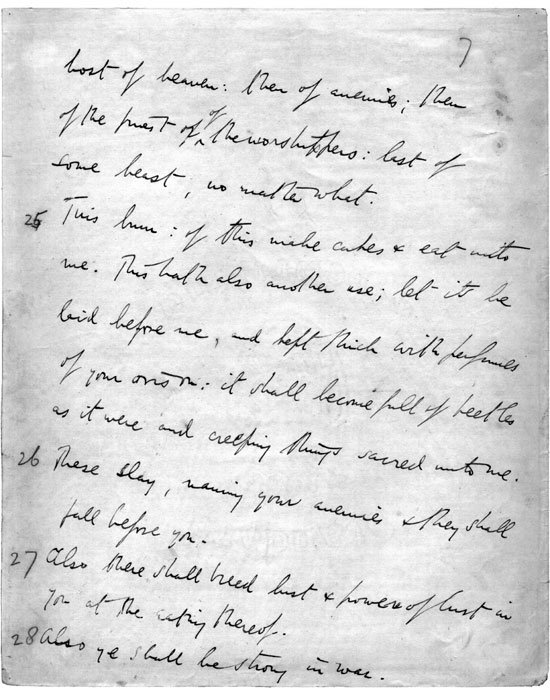 7
host of heaven: then of enemies; then
of the priest of of the worshippers: last of
some beast, no matter what.
25 This burn: of this make cakes & eat unto
me. This hath also another use; let it be
laid before me, and kept thick with perfumes
of your orison: it shall become full of beetles
as it were and creeping things sacred unto me.
26 These slay, naming your enemies & they shall
fall before you.
27 Also these shall breed lust & power of lust in
you at the eating thereof.
28 Also ye shall be strong in war.